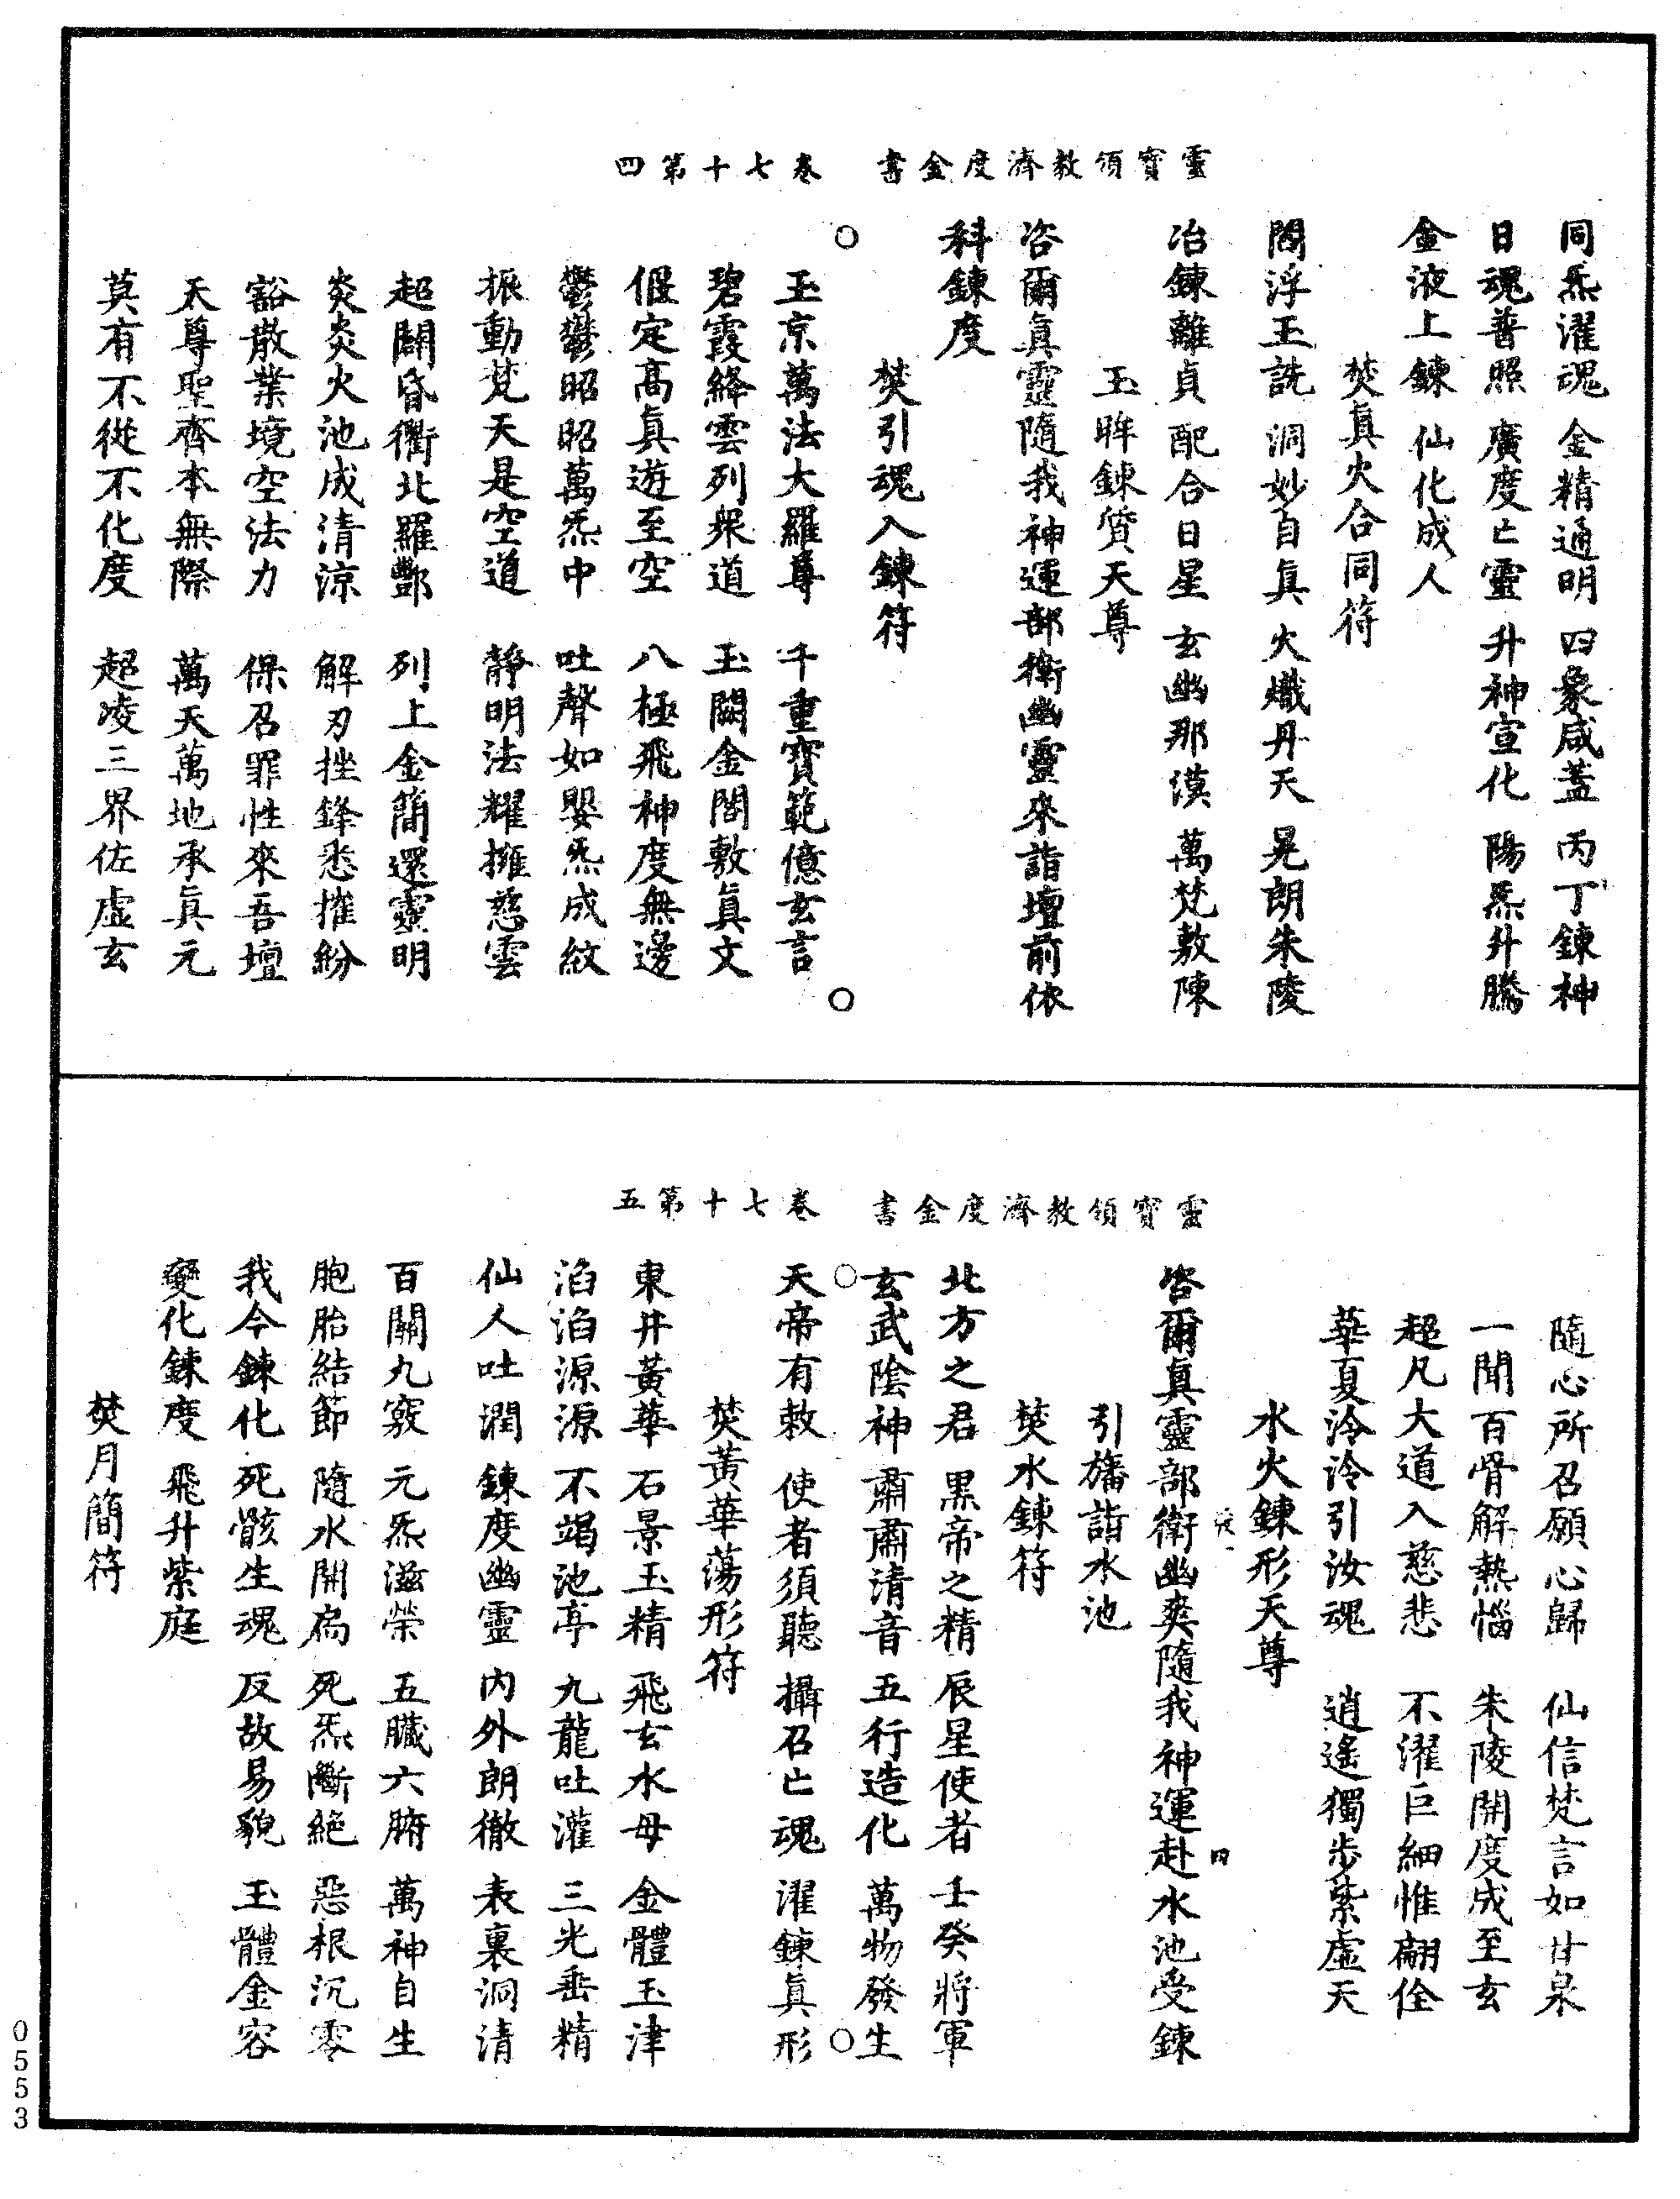 靈寶領教濟度金書　卷七十第四
同炁濯魂　金精通明　四象咸蓋　丙丁鍊神
日魂普照　廣度亡靈　升神宣化　陽炁升騰
金液上鍊　仙化成人
焚真火合同符
閻浮玉詵　洞妙自真　火熾丹天　晃朗朱陵
冶鍊離貞　配合日星　玄幽那漠　萬梵敷陳
玉眸鍊質天尊
咨爾真靈隨我神運部衛幽靈來詣壇前依
科鍊度
焚引魂入鍊符
玉京萬法大羅尊　千重寶範億玄言
碧霞絳雲列衆道　玉闕金閣敷真文
偃定高真遊至空　八極飛神度無邊
鬱鬱昭昭萬炁中　吐聲如嬰炁成紋
振動梵天是空道　靜明法耀擁慈雲
超闢昏衢北羅酆　列上金簡還靈明
炎炎火池成清涼　解刃挫鋒悉摧紛
豁散業境空法力　保召罪性來吾壇
天尊聖齊本無際　萬天萬地承真元
莫有不從不化度　超凌三界佐虛玄
靈寶領教濟度金書　卷七十第五
隨心所召願心歸　仙信梵言如甘泉
一聞百骨解熱惱　朱陵開度成至玄
超凡大道入慈悲　不濯巨細惟翩佺
華夏泠泠引汝魂　逍遙獨步紫虛天
水火鍊形天尊
咨爾真靈部衛幽爽隨我神運赴水池受鍊
引旛詣水池
焚水鍊符
北方之君　黑帝之精　辰星使者　壬癸將軍
玄武陰神　肅肅清音　五行造化　萬物發生
天帝有敕　使者須聽　攝召亡魂　濯鍊真形
焚黃華蕩形符
東井黃華　石景玉精　飛玄水母　金體玉津
滔滔源源　不竭池亭　九龍吐灌　三光垂精
仙人吐潤　鍊度幽靈　內外朗徹　表裏洞清
百關九竅　元炁滋榮　五臟六腑　萬神自生
胞胎結節　隨水開扃　死炁斷絕　惡根沉零
我今鍊化　死骸生魂　反故易貌　玉體金容
變化鍊度　飛升紫庭
焚月簡符
0553